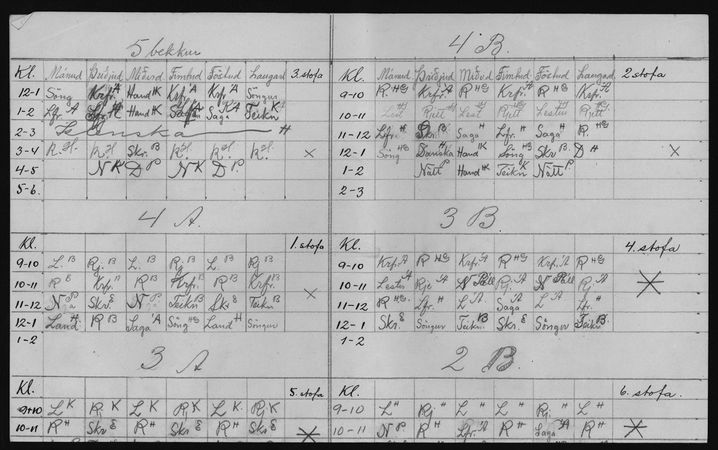 5 bekkur
Kl. Mánud Þriðjud Miðvd Fimtud Föstud Laugard 3. stofa
12-1 Söng Krfr. A Hand K Krfr. A Krfr. A Söngur
1-2 Lfr. A Hand K Saga K A Teikn K
2-3 Íslenska H
3-4 R. H. R. H. Skr. B R. H. R. H. R. H. ×
4-5 N K D P. N K D P.
5-6.
4 A.
Kl. 1. stofa
9-10 L. B Rj. B L. B Rj. B L. B Rj. B
10-11 R E Krfr. B R B Krfr. B R B Krfr. B
11-12 N. P Skr. E N. P Teikn B Skr. E Teikn B ×
12-1 Land. H R B Saga A Söng HG Land H Söngur
1-2
3 A
Kl. 5. stofa
9-10 L K Rj K L K Rj K L K Rj K
10-11 R H Skr E R H Skr E R H Skr E ×
4 B.
Kl. Mánud Þriðjud Miðvd Fimtud Föstud Laugard 2 stofa
9-10 R. HG Krfr. A R. HG Krfr. A R. HG Krfr. A
10-11 Lest Rjett Lest Rjett Lestur Rjett
11-12 Lfr. H Skr. B. Saga H Lfr. H Saga H R HG
12-1 Söng HG Danska H Hand K Söng HG Skr B. D H ×
1-2 Nátt P Hand K Teikn K Nátt P
2-3
3 B.
Kl. 4. stofa
9-10 Krfr. A R HG Krfr. A R HG Krfr. A R HG
10-11 Lestr A Rj. A N Páll Rj. A N Páll Rj. A ×
11-12 R HG. Lfr. H L A Saga A L A Lfr. H
12-1 Skr. E Söngur Teikn. B Skr. E Söngur Teikn B.
1-2
2 B.
Kl. 6. stofa.
9-10 L H Rj. H L H L H Rj. H L H
10-11 N P R H Lfr. A R H Saga A R H ×